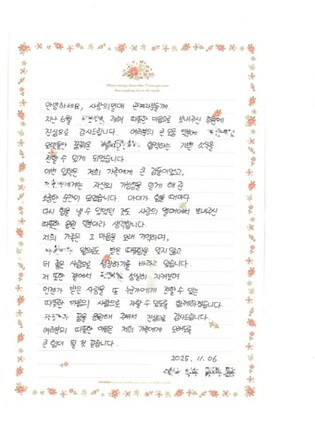 안녕하세요, 사랑의열매 관계자분들께
지난 6월 따뜻한 마음으로 보내주신 후원에
진심으로 감사드립니다. 여러분의 큰 도움 덕분에
기쁜 소식을
전할 수 있게 되었습니다.
이번 입학은 저희 가족에게 큰 감동이었고,
자신의 가능성을 믿게 해 준
소중한 순간이 되었습니다. 아이가 힘들 때마다
다시 힘을 낼 수 있었던 것도 사랑의 열매에서 보내주신
따뜻한 응원 덕분이라 생각합니다.
저희 가족은 그 마음을 오래 기억하며,
앞으로도 받은 따뜻함을 잊지 않고
더 깊은 사람으로 성장하기를 바라고 있습니다.
저 또한 곁에서 성실히 지켜보며
언젠가 받은 사랑을 또 누군가에게 전할 수 있는
따뜻한 마음의 사람으로 자랄 수 있도록 함께하겠습니다.
꿈을 응원해 주셔서 진심으로 감사드립니다.
여러분의 따뜻한 마음은 저희 가족에게 앞으로도
큰 힘이 될 것 같습니다.
2025. 11. 06